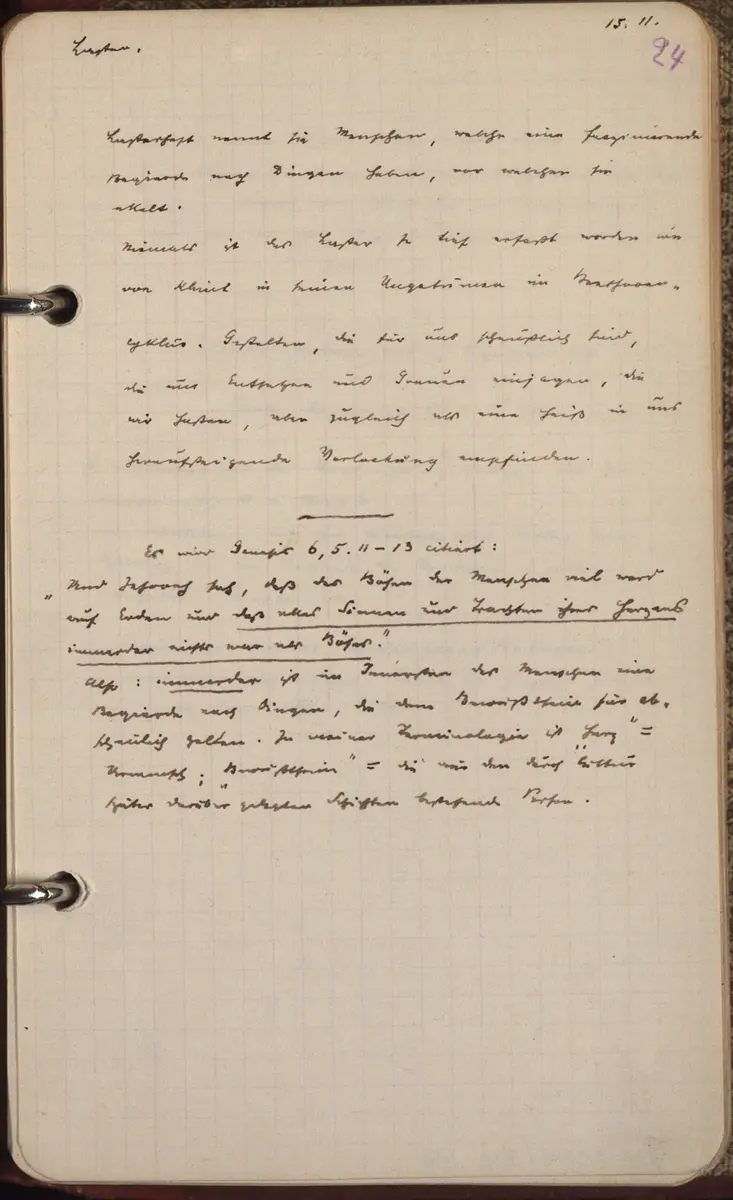 15. 11.
24
Laster.
Lasterhaft nennt sie Menschen, welche eine faszinierende
Begierde nach Dingen haben, vor welchen sie
ekelt.
Niemals ist das Laster so tief erfaßt worden wie
von Klimt in seinen Ungetümen im Beethoven-
cyklus. Gestalten, die für uns scheußlich sind,
die uns Entsetzen und Grauen einjagen, die
wir hassen, aber zugleich als eine heiß in uns
heraufsteigende Verlockung empfinden.
Es wird Genesis 6, 5. 11–13 citiert:
„Und Jehovah sah, daß des Bösen der Menschen viel ward
auf Erden und daß alles Sinnen und Trachten ihres Herzens
immerdar nichts war als Böses."
Also: immerdar ist im Innersten des Menschen eine
Begierde nach Dingen, die dem Bewußtsein für ab-
scheulich gelten. In meiner Terminologie ist „Herz" =
Urmensch; „Bewußtsein" = die aus den durch Cultur
später darüber gelegten Schichten bestehende Person.